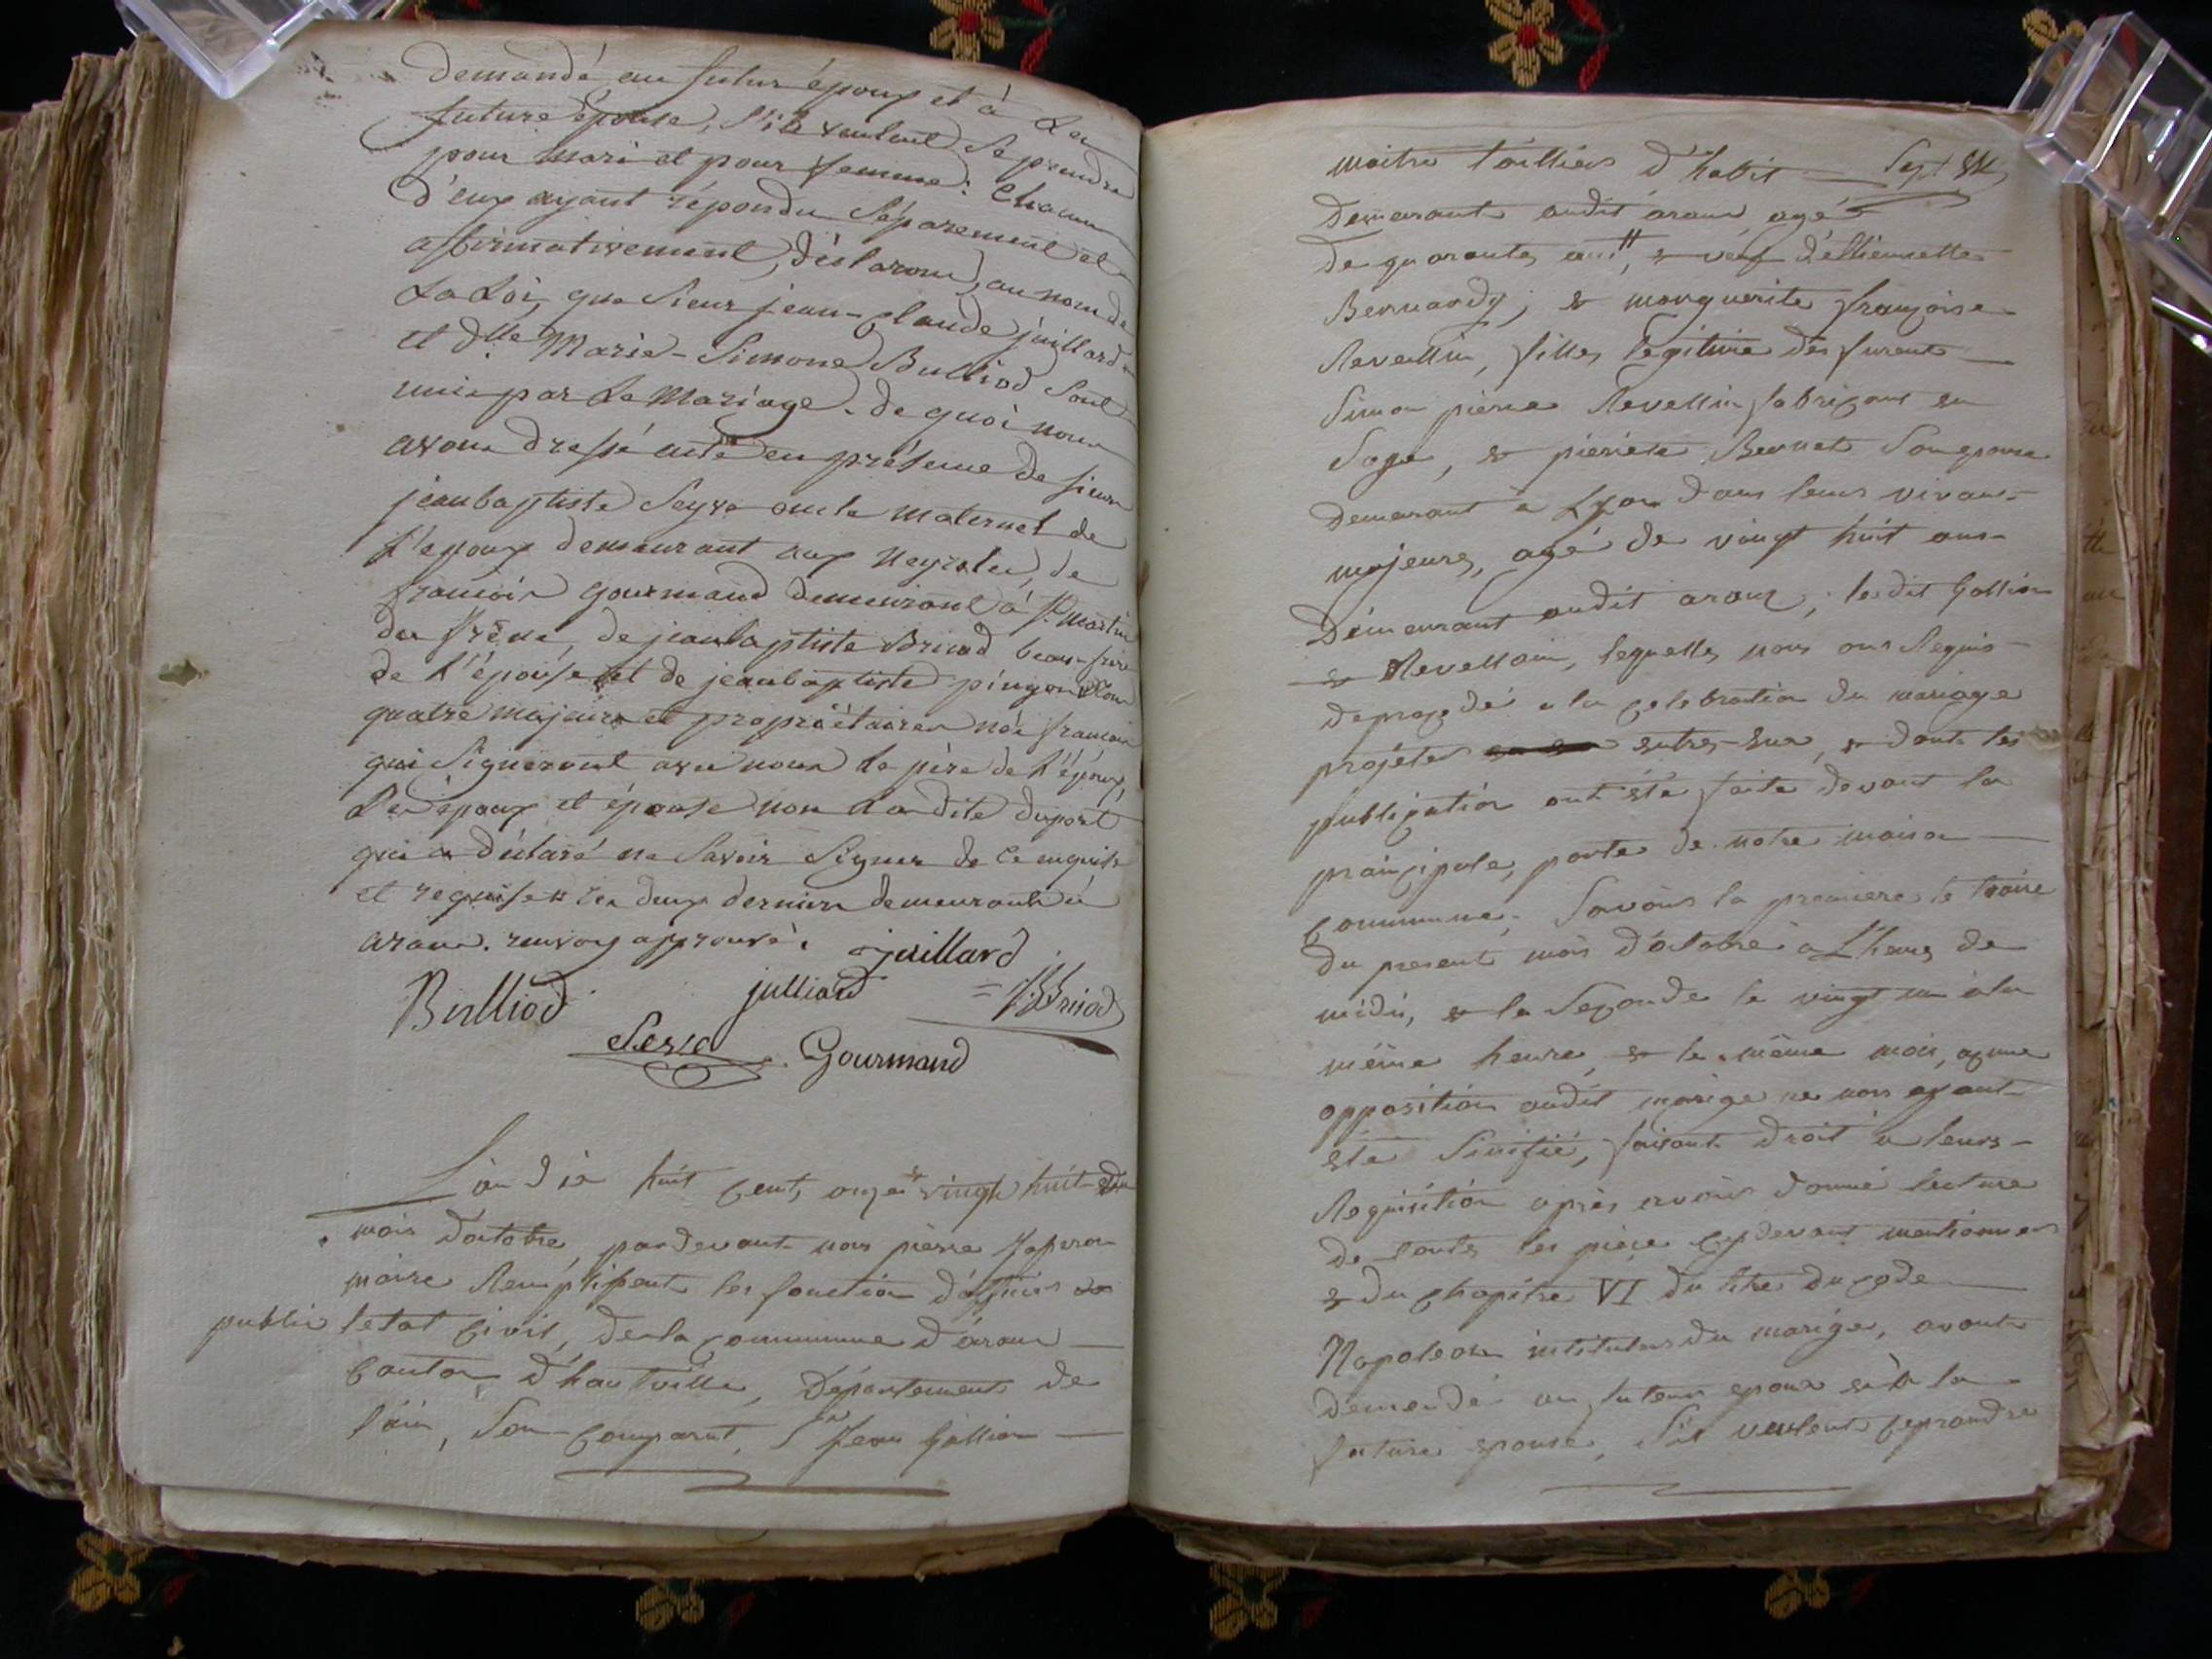 demandé au futur époux et à la
future épouse, s'ils veulent se prendre
pour mari et pour femme: chacun
d'eux ayant répondu séparement et
affirmativement, déclarons, au nom de
la Loi, que sieur jean-claude juillard
et dlle Marie-Simone Bulliod sont
unis par le mariage. de quoi nous
avons dressé acte en présence de sieurs
jeanbaptiste Seyve oncle maternel de
l'epoux demeurant aux Neyroles, de
françois gourmand demeurant à st martin
du frêne, de jeanbaptiste Brinod beau-frère
de l'épouse et de jeanbaptiste pingeon tous
quatre majeurs et propriétaires nés français
qui signeront avec nous le père de l'époux,
les époux et épouse non la dite duport
qui a déclaré ne savoir signer de ce enquise
et requise # les deux derniers demeurants à
aranc. renvoy approuvé. juillard
Bulliod julliard = JBBrinod
Seyve Gourmand
L'an diz huit cent, onze & vingt huit du
mois d'octobre, pardevant nous pierre
maire Remplissent les fonction d'officier de
public letat civil, de la commune d'aranc
canton d'hauteville, Département de
l'ain, son comparut, Sr Jean Gallion
maitre tailleur d'habit
Demeurant audit aranc agé
de quarante ans, & veuf d'ettiennette
Bernardy; & marguerite françoise
Revellin, filles legitime des furent
Simon pierre Revellin fabricant en
Soye, & pierrete Bernet Son epouse
Demeurant à Lyon dans leurs vivans
majeure, agé de vingt huit ans
Demeurant audit aranc; lesdit Gallion
& Revellain, lequelles nous ons Requis
de procedé a la celebration du mariage
projeter entres-eux, & dont les
publication ont été faite devant la
principale, porte de notre maison
commune. Savoir la premiere le traise
du present mois d'octobre a L'heure de
midi, & la Seconde le vingt un a la
même heure, & le même mois, aqune
opposition audit marige ne nous ayant
été Sinifié, faisant droit a leurs
Requisition après avoir donné lecture
de toutes les pièce cydevant mentionnes
& du chapitre VI du titre du code
Napoleon intitulés du mariges, avont
demendé au futeur epoux et a la
future epouse, s'il veulent ce prandre